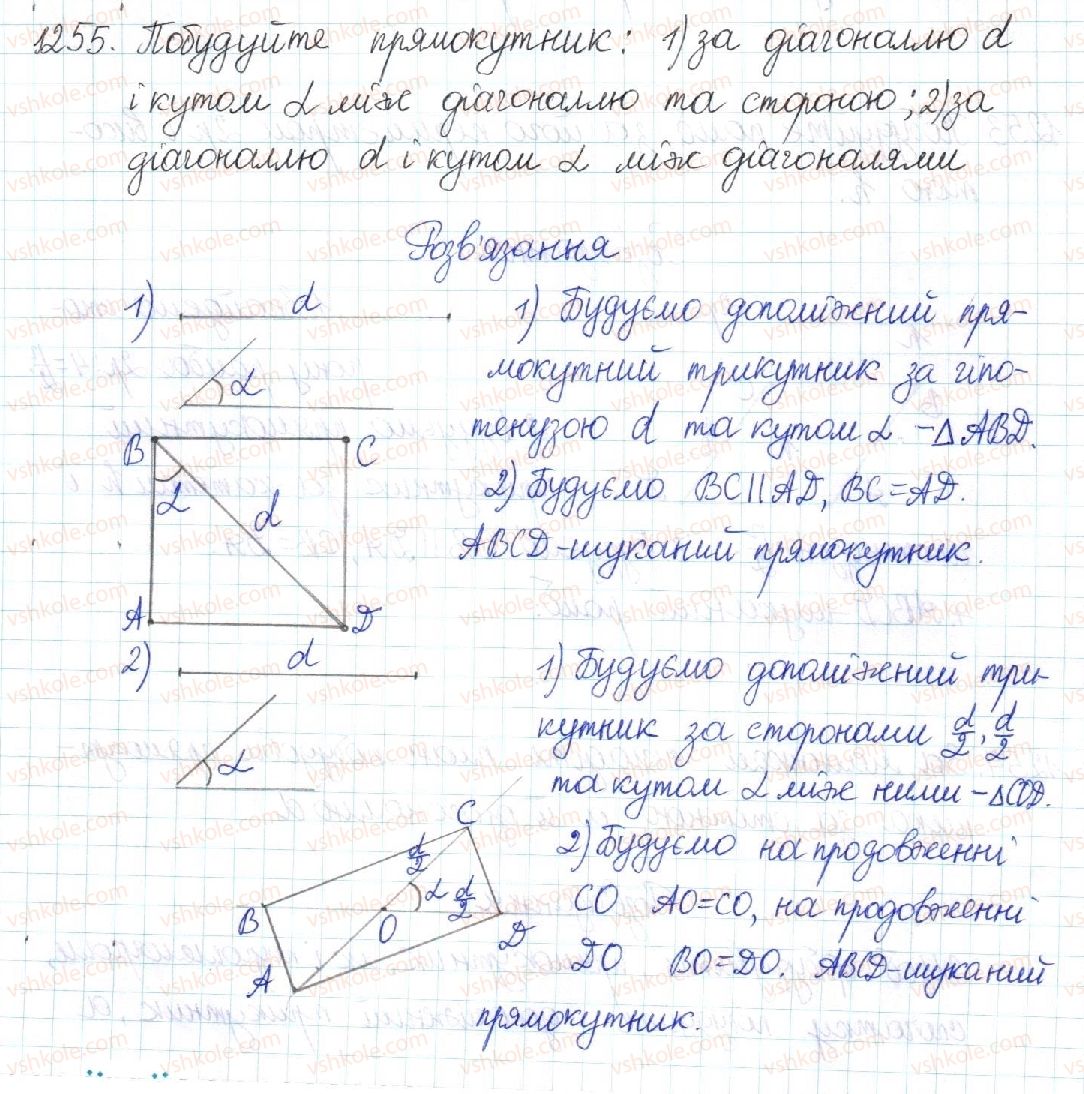 1255. Побудуйте прямокутник: 1) за діагоналлю d
і кутом α між діагоналлю та стороною; 2) за
діагоналлю d і кутом α між діагоналями
Розв'язання
1) d
α
1) Будуємо допоміжний пря-
мокутний трикутник за гіпо-
тенузою d та кутом α - △ABD.
2) Будуємо BC||AD, BC=AD.
ABCD-шуканий прямокутник.
B
C
α
d
A
D
2) d
α
1) Будуємо допоміжний три-
кутник за сторонами d/2, d/2
та кутом α між ними - △COD.
2) Будуємо на продовженні
CO AO=CO, на продовженні
DO BO=DO. ABCD-шуканий
прямокутник.
C
d/2
α
d/2
B
O
D
A
vshkole.com